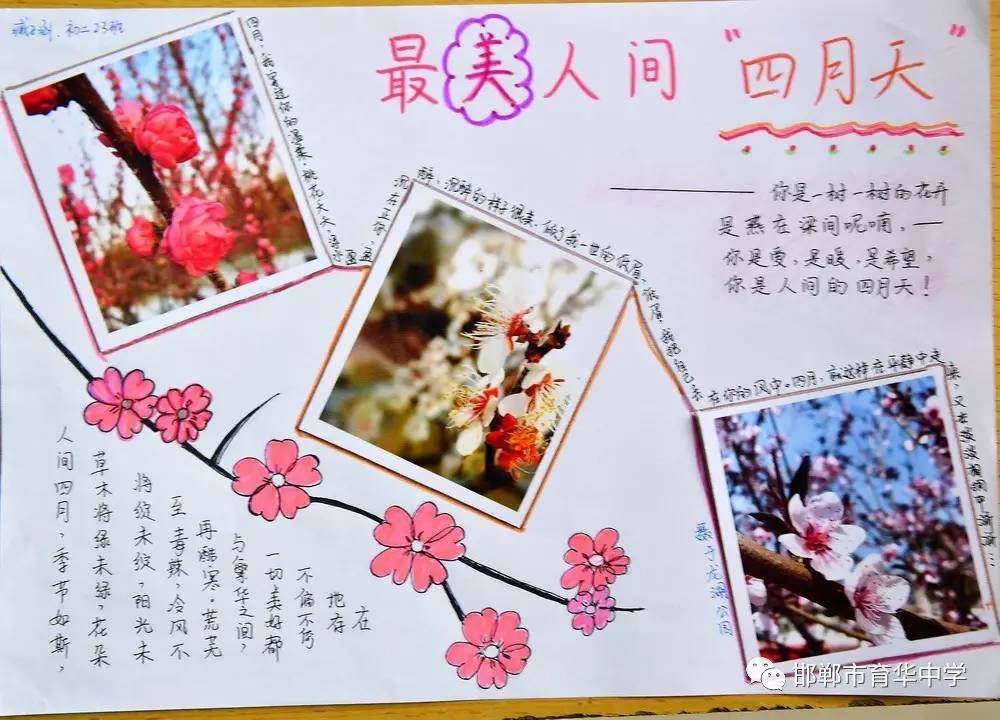 初二23班
最美人间“四月天”
你是一树一树的花开
是燕在梁间呢喃,一
你是爱,是暖,是希望,
你是人间的四月天!
四月,我穿过你的
桃花夭夭,
沉醉,沉醉的样子很美
低眉,我把自己
在你的风中。四月,就这样在平静中走来,又在淡淡
人间四月,季节如斯,
草木将绿未绿,花朵
将绽未绽,阳光未
至毒辣,冷风不
再酷寒。荒芜
与繁华之间,
一切美好都
不偏不倚
地存
在
摄于龙湖公园
邯郸市育华中学